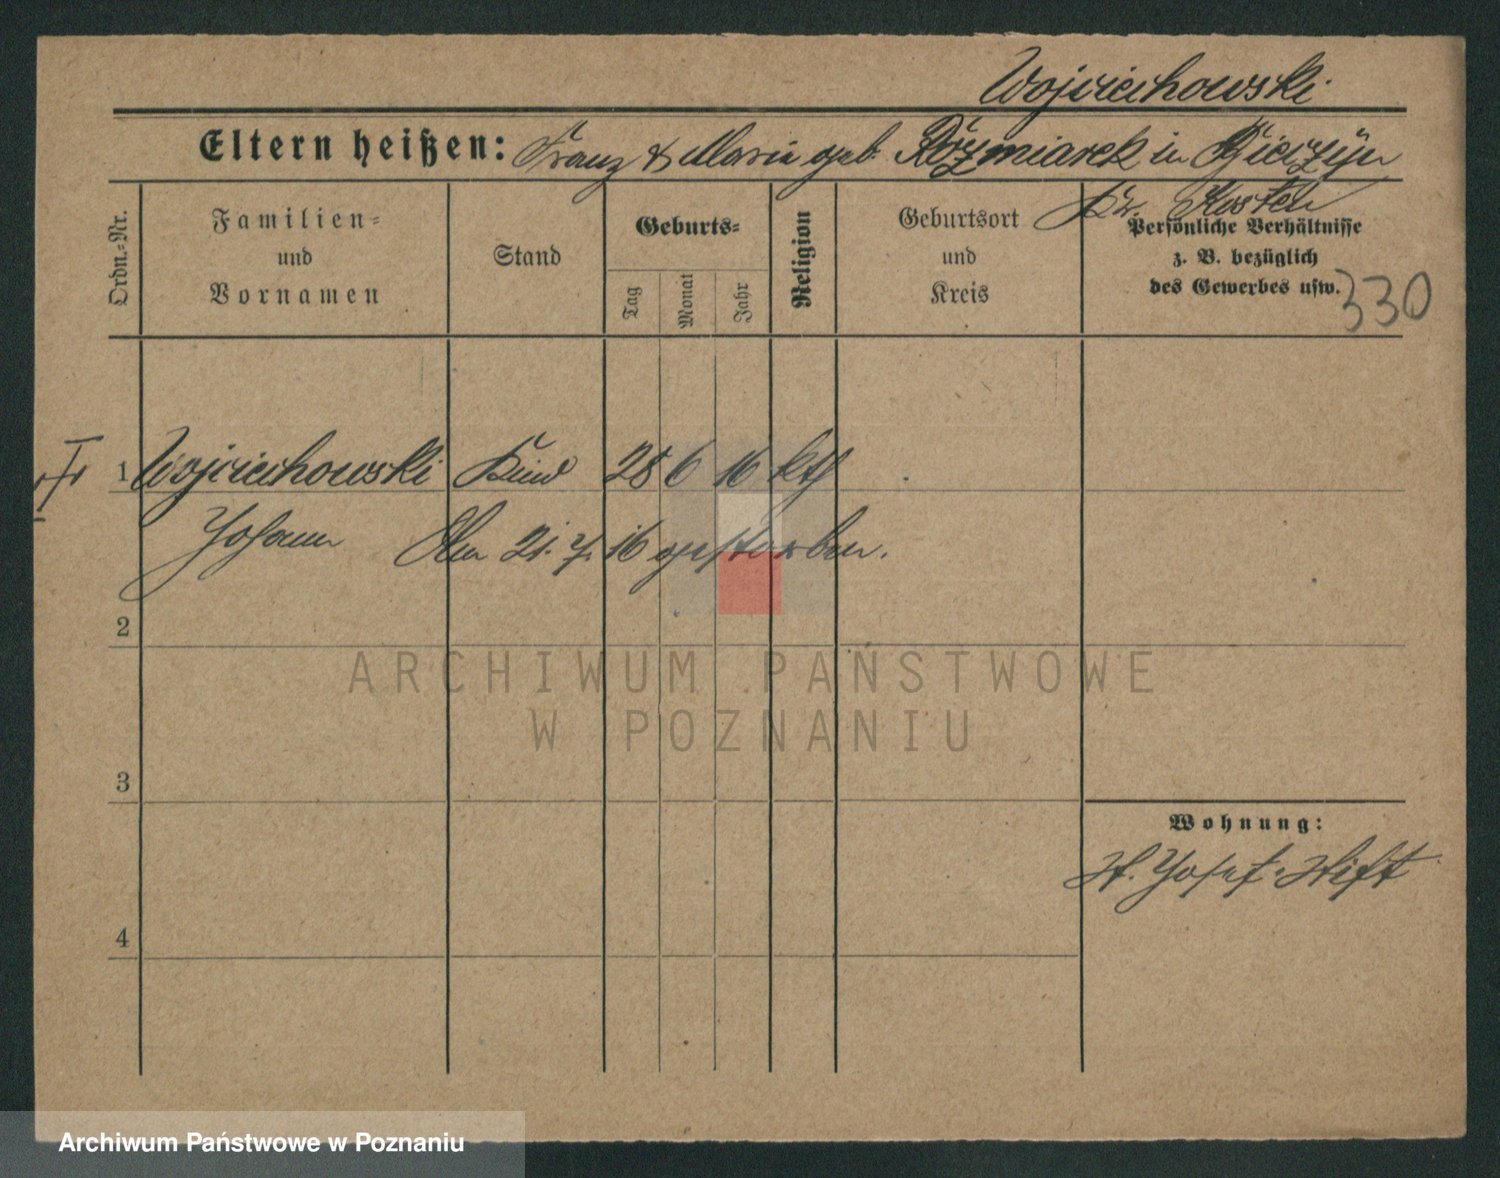 Wojciechowski
Eltern heißen: Franz & Maria geb. Rozmiarek in Bieczyn
Kr. Kosten
Ordn.=Nr.
Familien=
und
Vornamen
Stand
Geburts=
Tag
Monat
Jahr
Religion
Geburtsort
und
Kreis
Persönliche Verhältnisse
z. B. bezüglich
des Gewerbes usw.
330
1 Wojciechowski Kind 28 6 16 kth
Johann Am 21. 7. 16 gestorben.
2
ARCHIWUM PAŃSTWOWE
W POZNANIU
3
Wohnung:
St. Josef-Stift
4
Archiwum Państwowe w Poznaniu